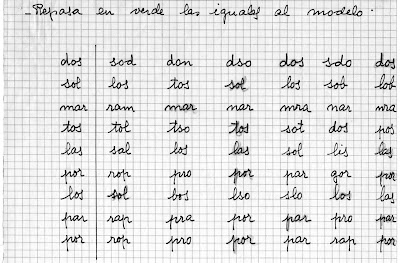 -Repasa en verde las iguales al modelo.
dos sod dan dso dos sdo dos
sol los tos sol los sob lob
mar ram mar nar mra nar mra
tos tol tso tos sot dos pos
las sal los las sol lis las
por rop pro por par gor por
los sol bos lso slo los las
par rap pra por par pro par
por rop pro por par rap por